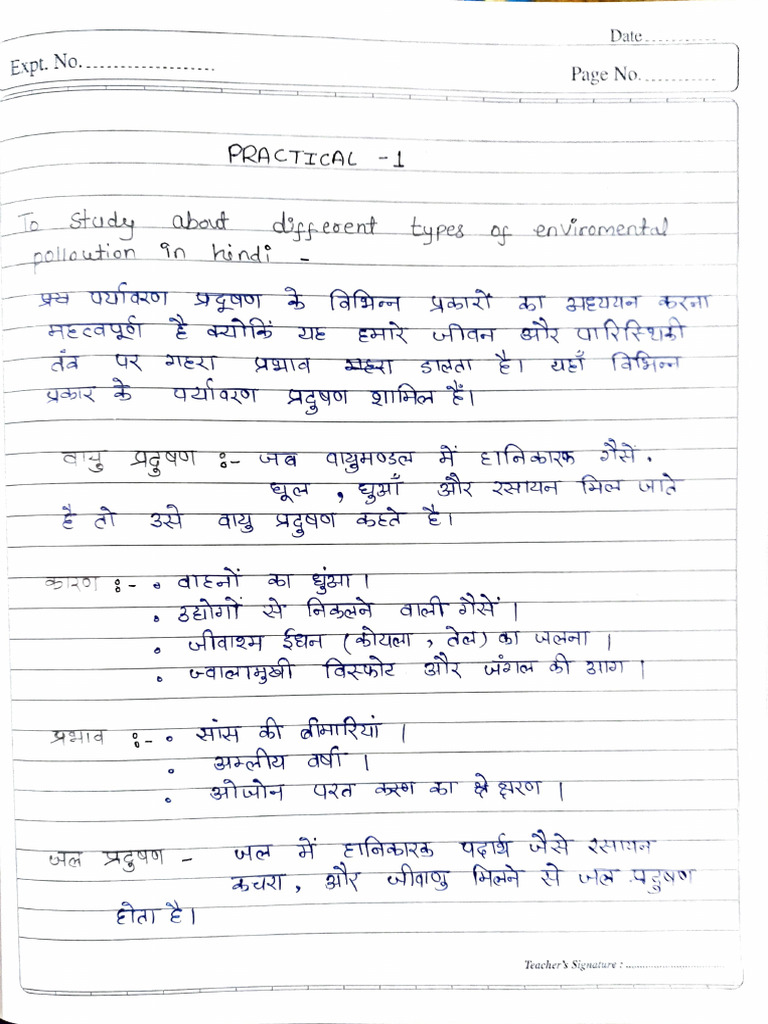 Date...........
Expt. No....................
Page No............
PRACTICAL - 1
To study about different types of enviromental
polloution in hindi -
पर्यावरण प्रदूषण के विभिन्न प्रकारों का अध्ययन करना
महत्वपूर्ण है क्योकिं यह हमारे जीवन और पारिस्थिकी
तंत्र पर गहरा प्रभाव डालता है। यहाँ विभिन्न
प्रकार के पर्यावरण प्रदुषण शामिल हैं।
वायु प्रदुषण :- जब वायुमण्डल में हानिकारक गैसें.
धूल , धुआँ और रसायन मिल जाते
है तो उसे वायु प्रदुषण कहते है।
कारण :- • वाहनों का धुंआ।
• उद्योगों से निकलने वाली गैसें।
• जीवाश्म ईधन (कोयला , तेल) का जलना ।
• ज्वालामुखी विस्फोट और जंगल की आग ।
प्रभाव :- • सांस की बीमारियां ।
• अम्लीय वर्षा ।
• ओजोन परत का क्षरण ।
जल प्रदुषण - जल में हानिकारक पदार्थ जैसे रसायन
कचरा, और जीवाणु मिलने से जल प्रदुषण
होता है।
Teacher's Signature : ..............................